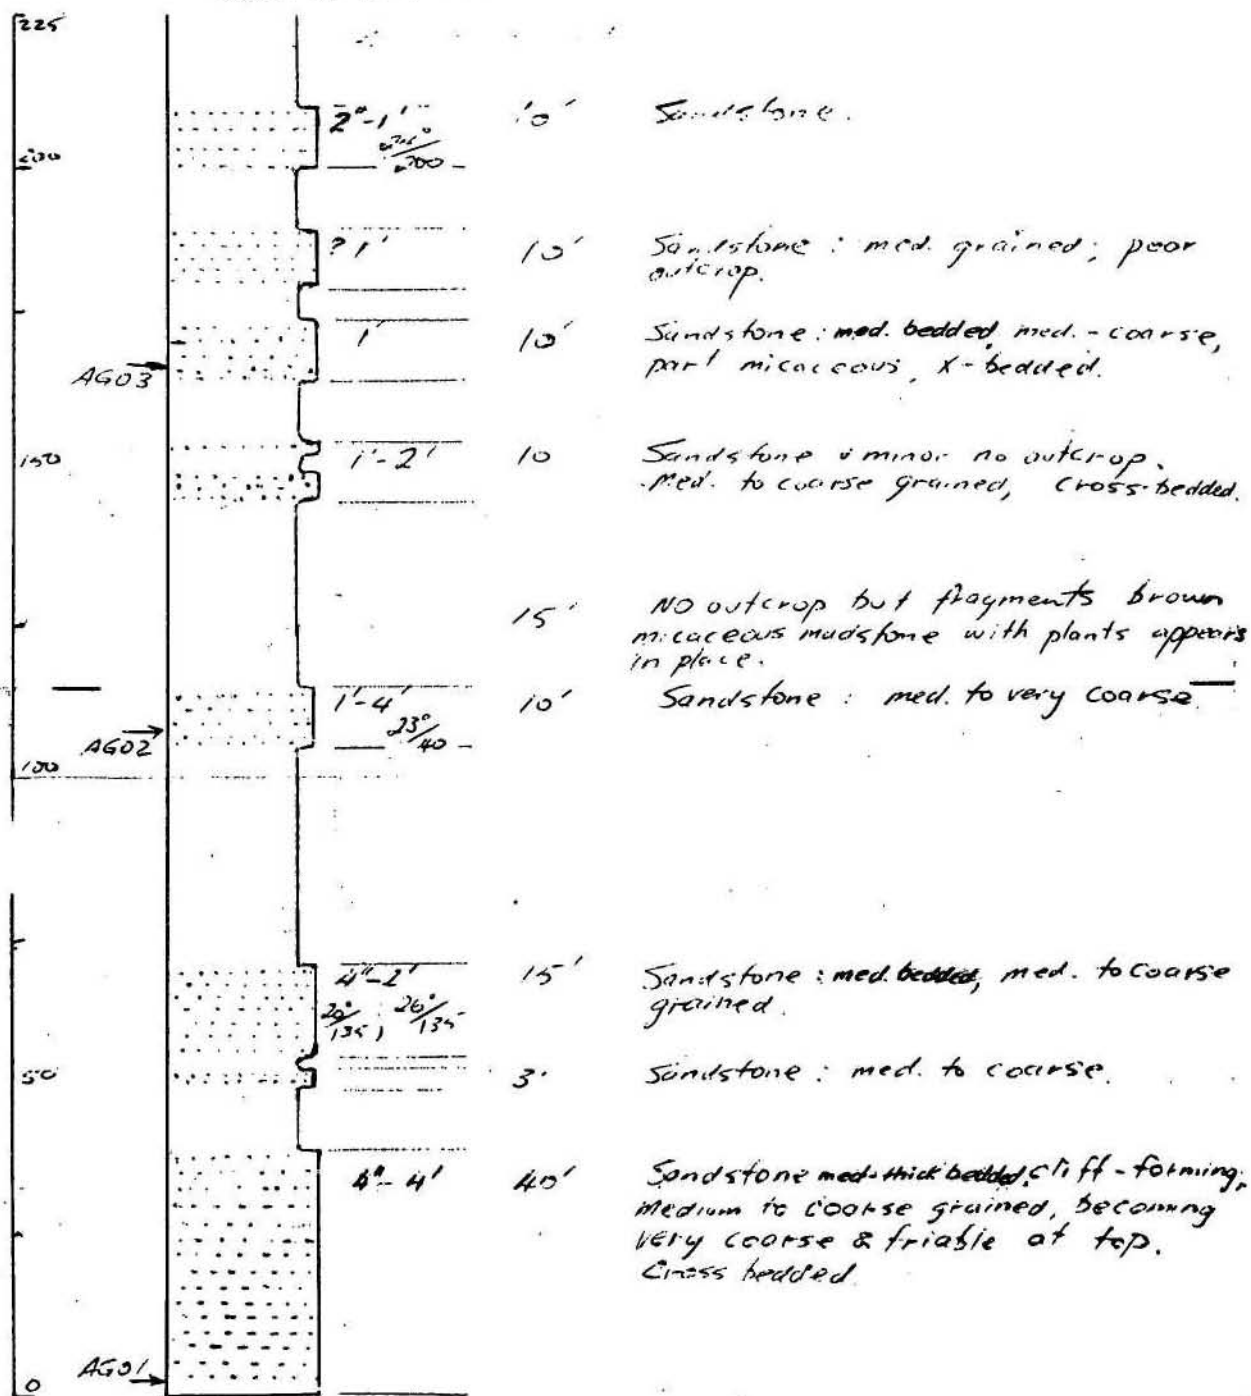 225
2"-1' 10' Sandstone.
200
200
? 1' 10' Sandstone : med. grained ; poor
outcrop.
1' 10' Sandstone : med. bedded, med. - coarse,
AG03 part micaceous, X-bedded.
150 1'-2' 10 Sandstone & minor no outcrop.
Med. to coarse grained, cross-bedded.
15' NO outcrop but fragments brown
micaceous mudstone with plants appears
in place.
1'-4' 10' Sandstone : med. to very coarse
AG02 23°/40
100
4"-2' 15' Sandstone : med. bedded, med. to coarse
20°/135, 26°/135 grained.
50 3' Sandstone : med. to coarse.
4"-4' 40' Sandstone med-thick bedded, cliff-forming,
medium to coarse grained, becoming
very coarse & friable at top.
Cross bedded.
AG01
0